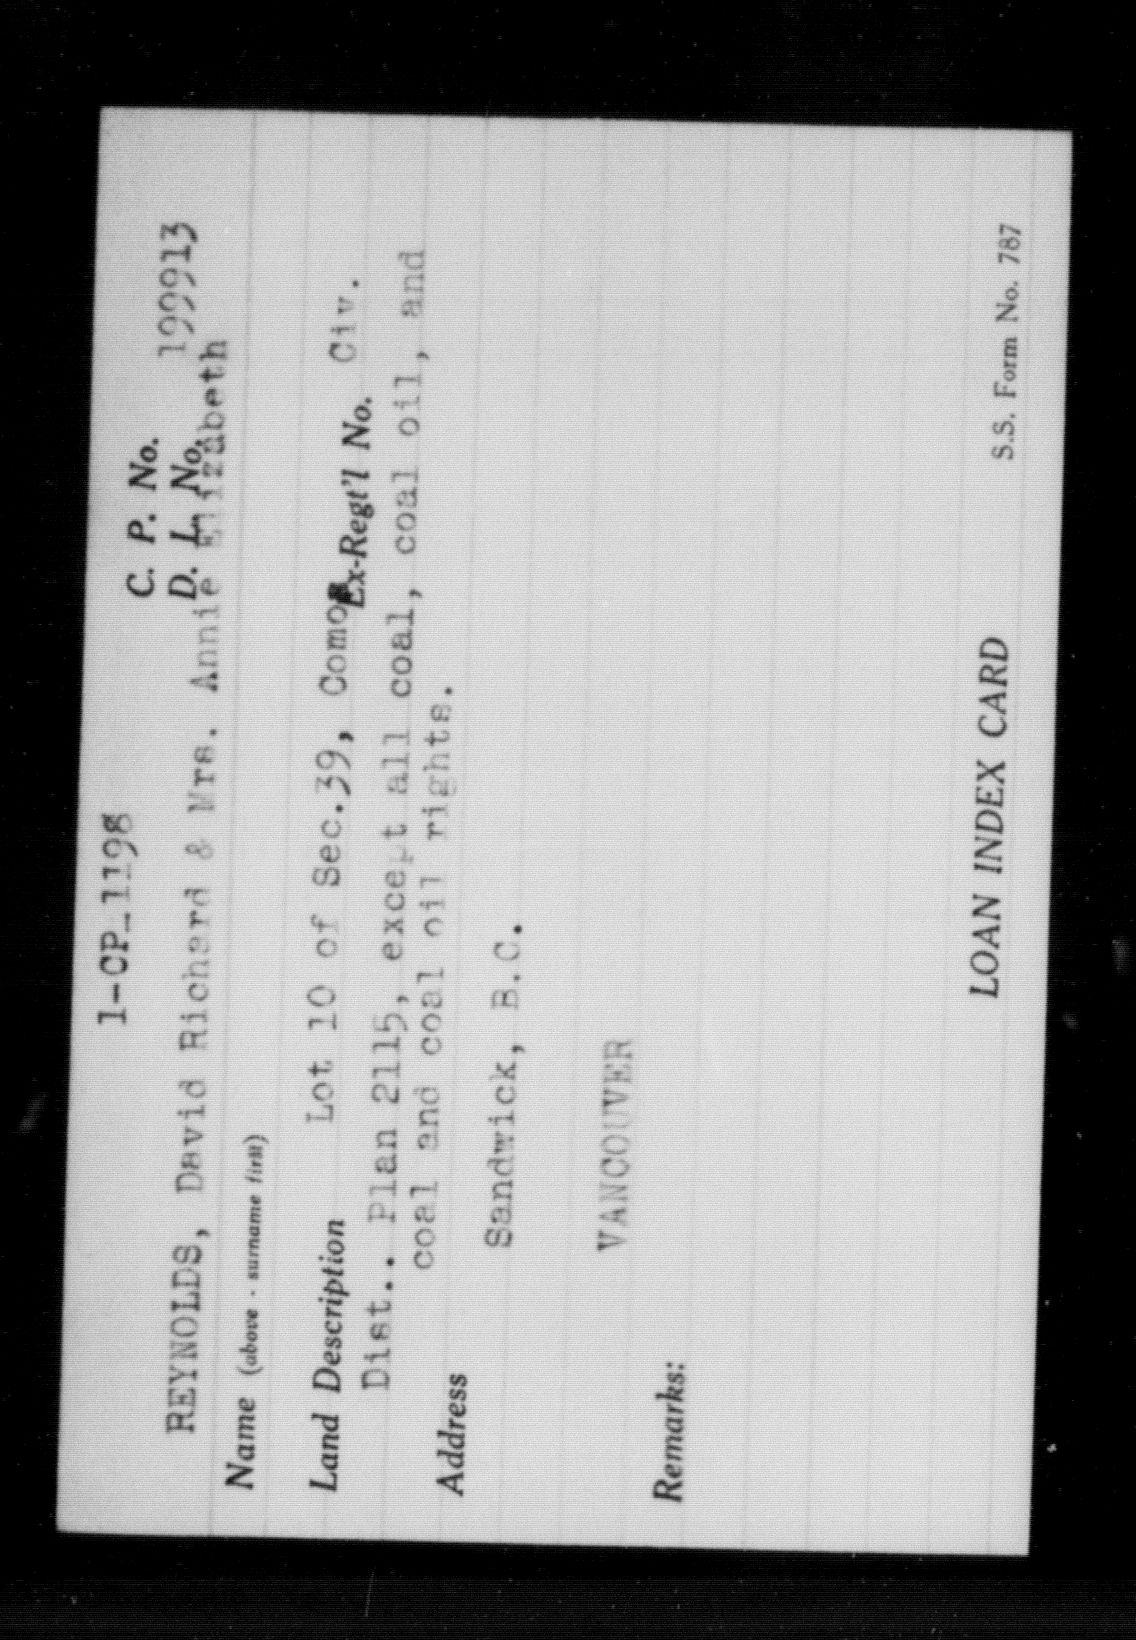 1-CP-1198
C. P. No.
REYNOLDS, David Richard & Mrs. Annie Elizabeth D. L. No. 199913
Name (above - surname first)
Land Description Lot 10 of Sec.39, Comox Ex-Regt'l No. Civ.
Dist.. Plan 2115, except all coal, coal oil, and
coal and coal oil rights.
Address Sandwick, B.C.
VANCOUVER
Remarks:
LOAN INDEX CARD S.S. Form No. 787